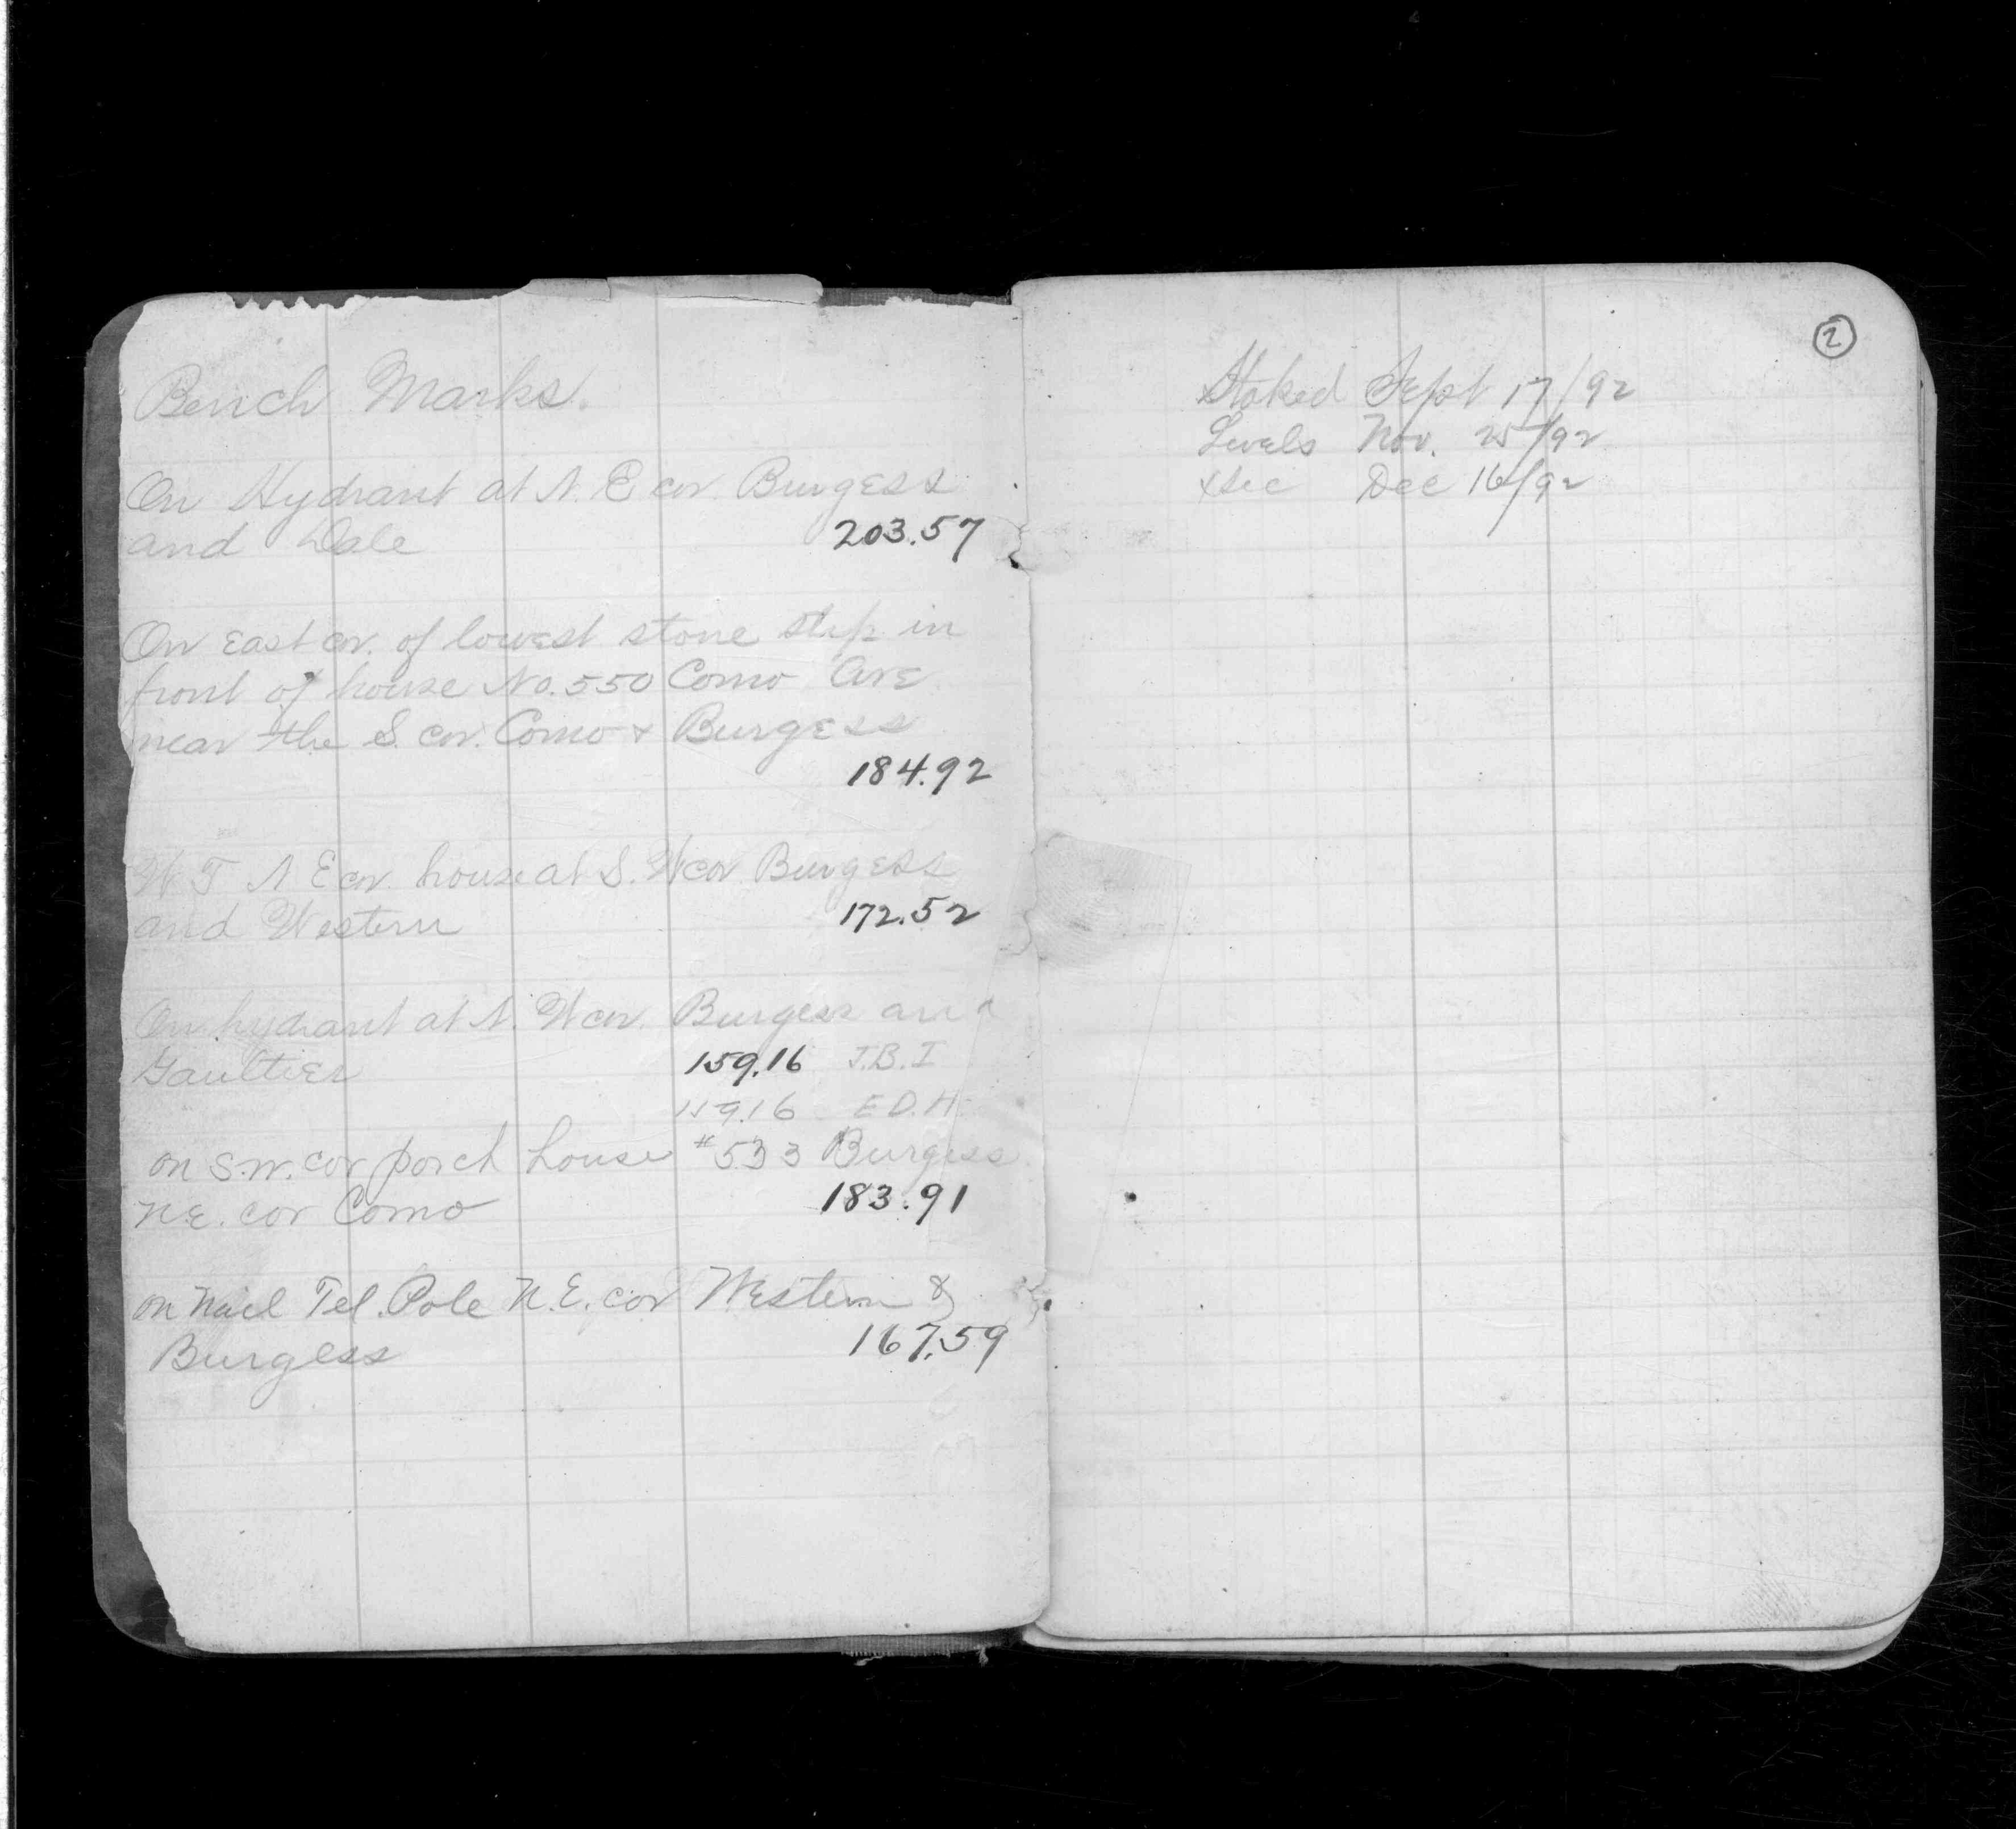 Bench Marks.
On Hydrant at N.E cor. Burgess
and Dale 203.57
On East cor. of lowest stone step in
front of house No. 550 Como Ave
near the S. cor. Como & Burgess
184.92
W T N E cor. house at S. W cor Burgess
and Western 172.52
On hydrant at N. W cor. Burgess and
Gaultier 159.16 J.B.I
159.16 E D.H
on S.W. cor porch house #533 Burgess
N.E. cor Como 183.91
on Nail Tel. Pole N.E. cor Western &
Burgess 167.59
2
Staked Sept 17/92
Levels Nov. 25/92
xsec Dec 16/92